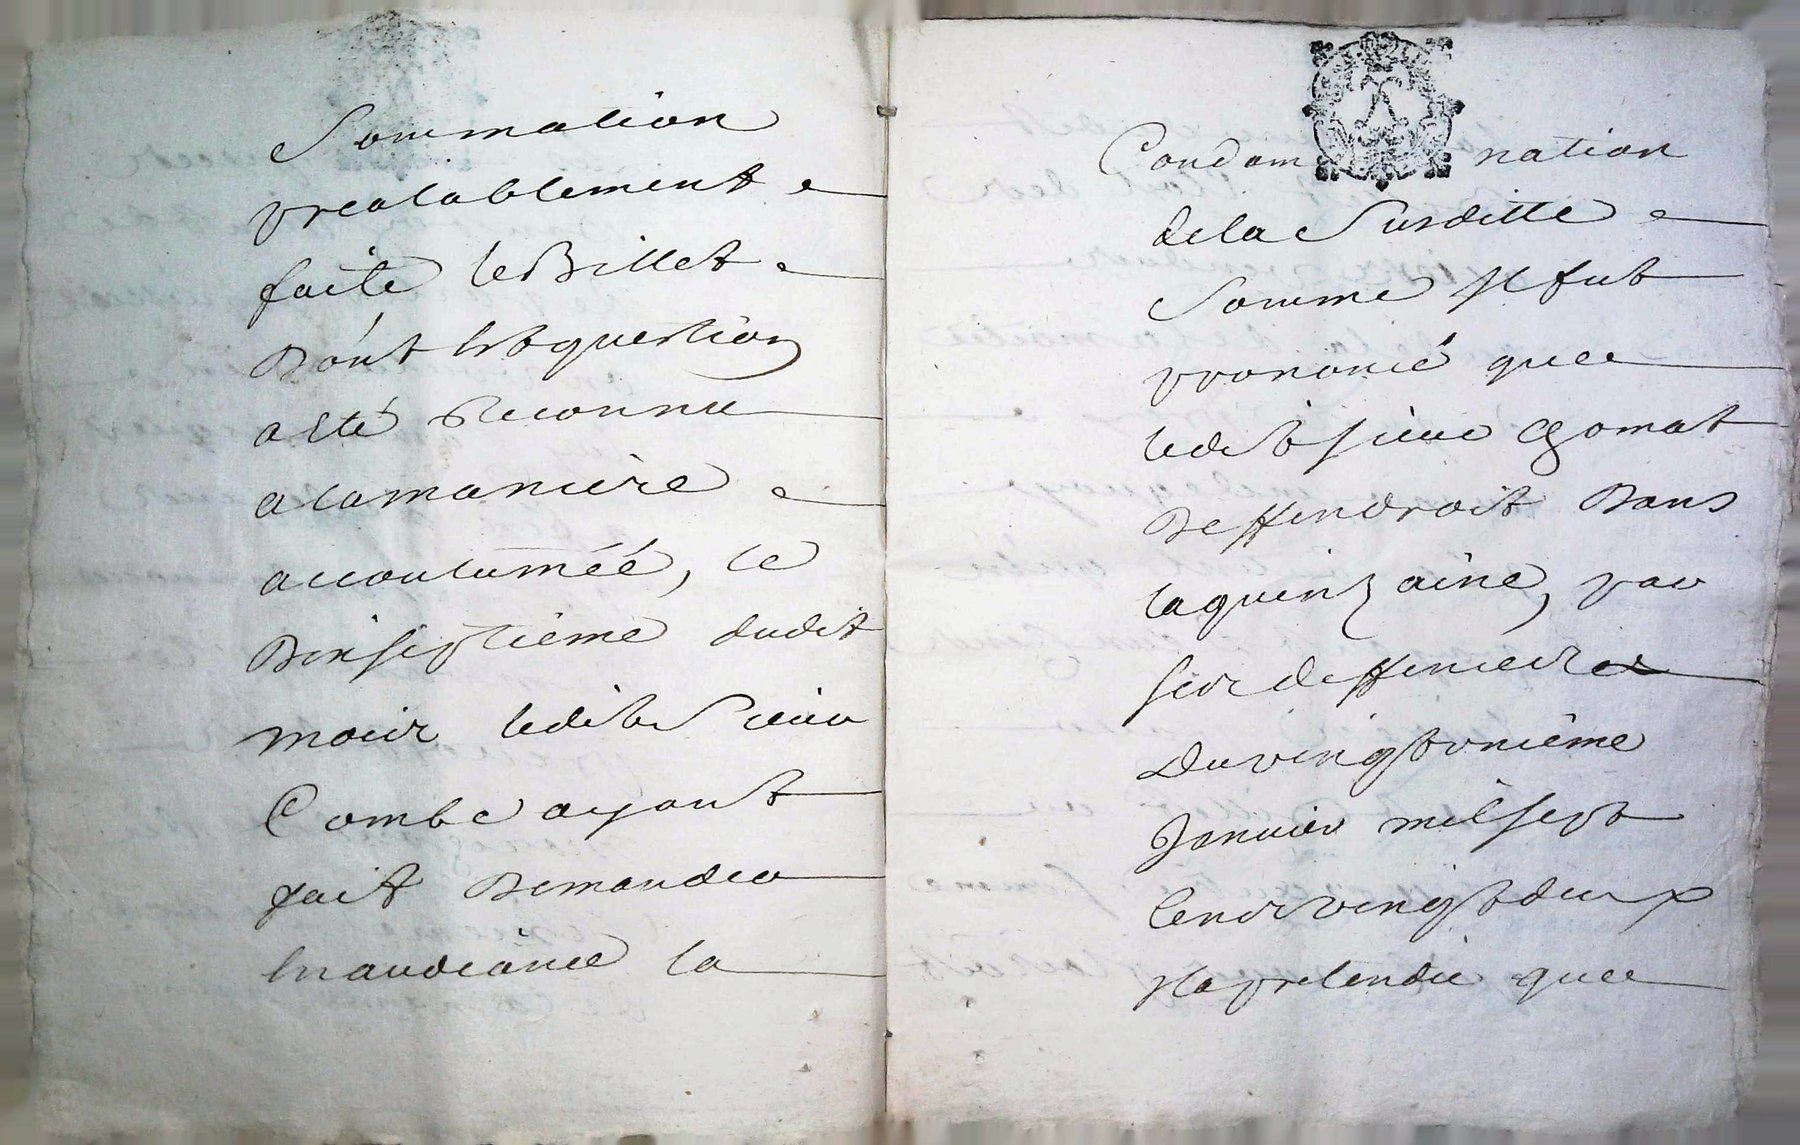 Sommation
prealablement
faite le Billet
Dont est question
a été Reconnu
a la maniere
accoutumée, le
Dix septieme dudit
mois ledit Sieur
Combe ayant
fait Demander
en audiance la
Condamnation
de la Susditte
Somme Il fut
prononcé que
ledit sieur Gomat
Deffendroit Dans
la quinzaine, par
ses deffences
du vingt unième
Janvier mil sept
cens vingt deux
Il a pretendu que